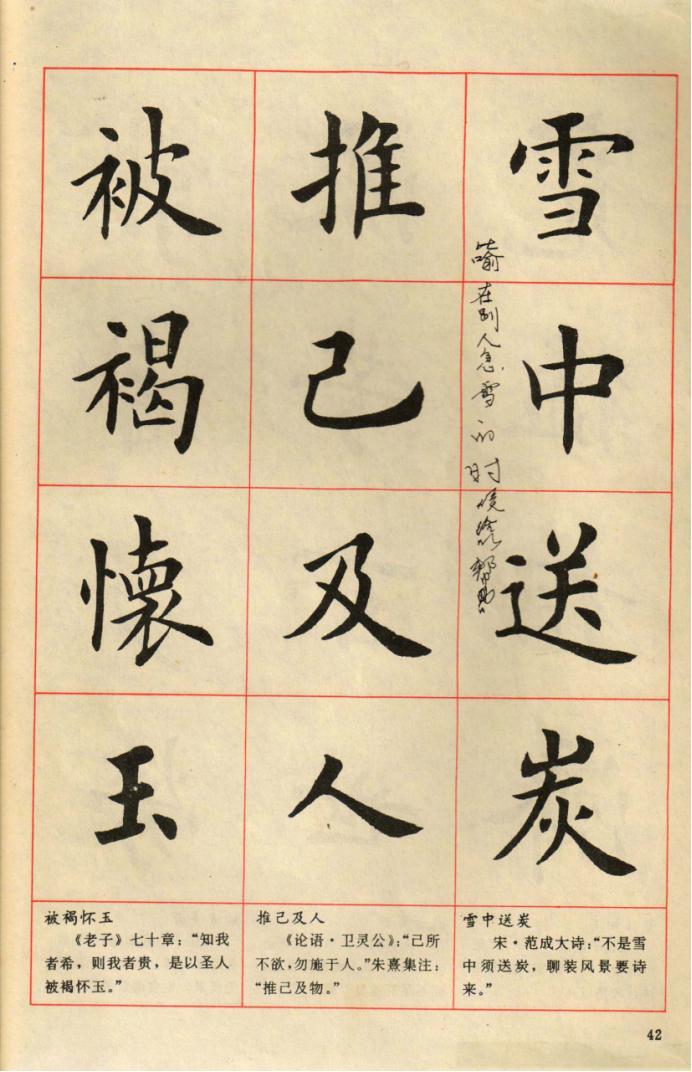 雪中送炭
比喻在别人急需的时候给以帮助
推己及人
被褐懷玉
雪中送炭
宋·范成大诗：“不是雪
中须送炭，聊装风景要诗
来。”
推己及人
《论语·卫灵公》：“己所
不欲，勿施于人。”朱熹集注：
“推己及物。”
被褐怀玉
《老子》七十章：“知我
者希，则我者贵，是以圣人
被褐怀玉。”
42